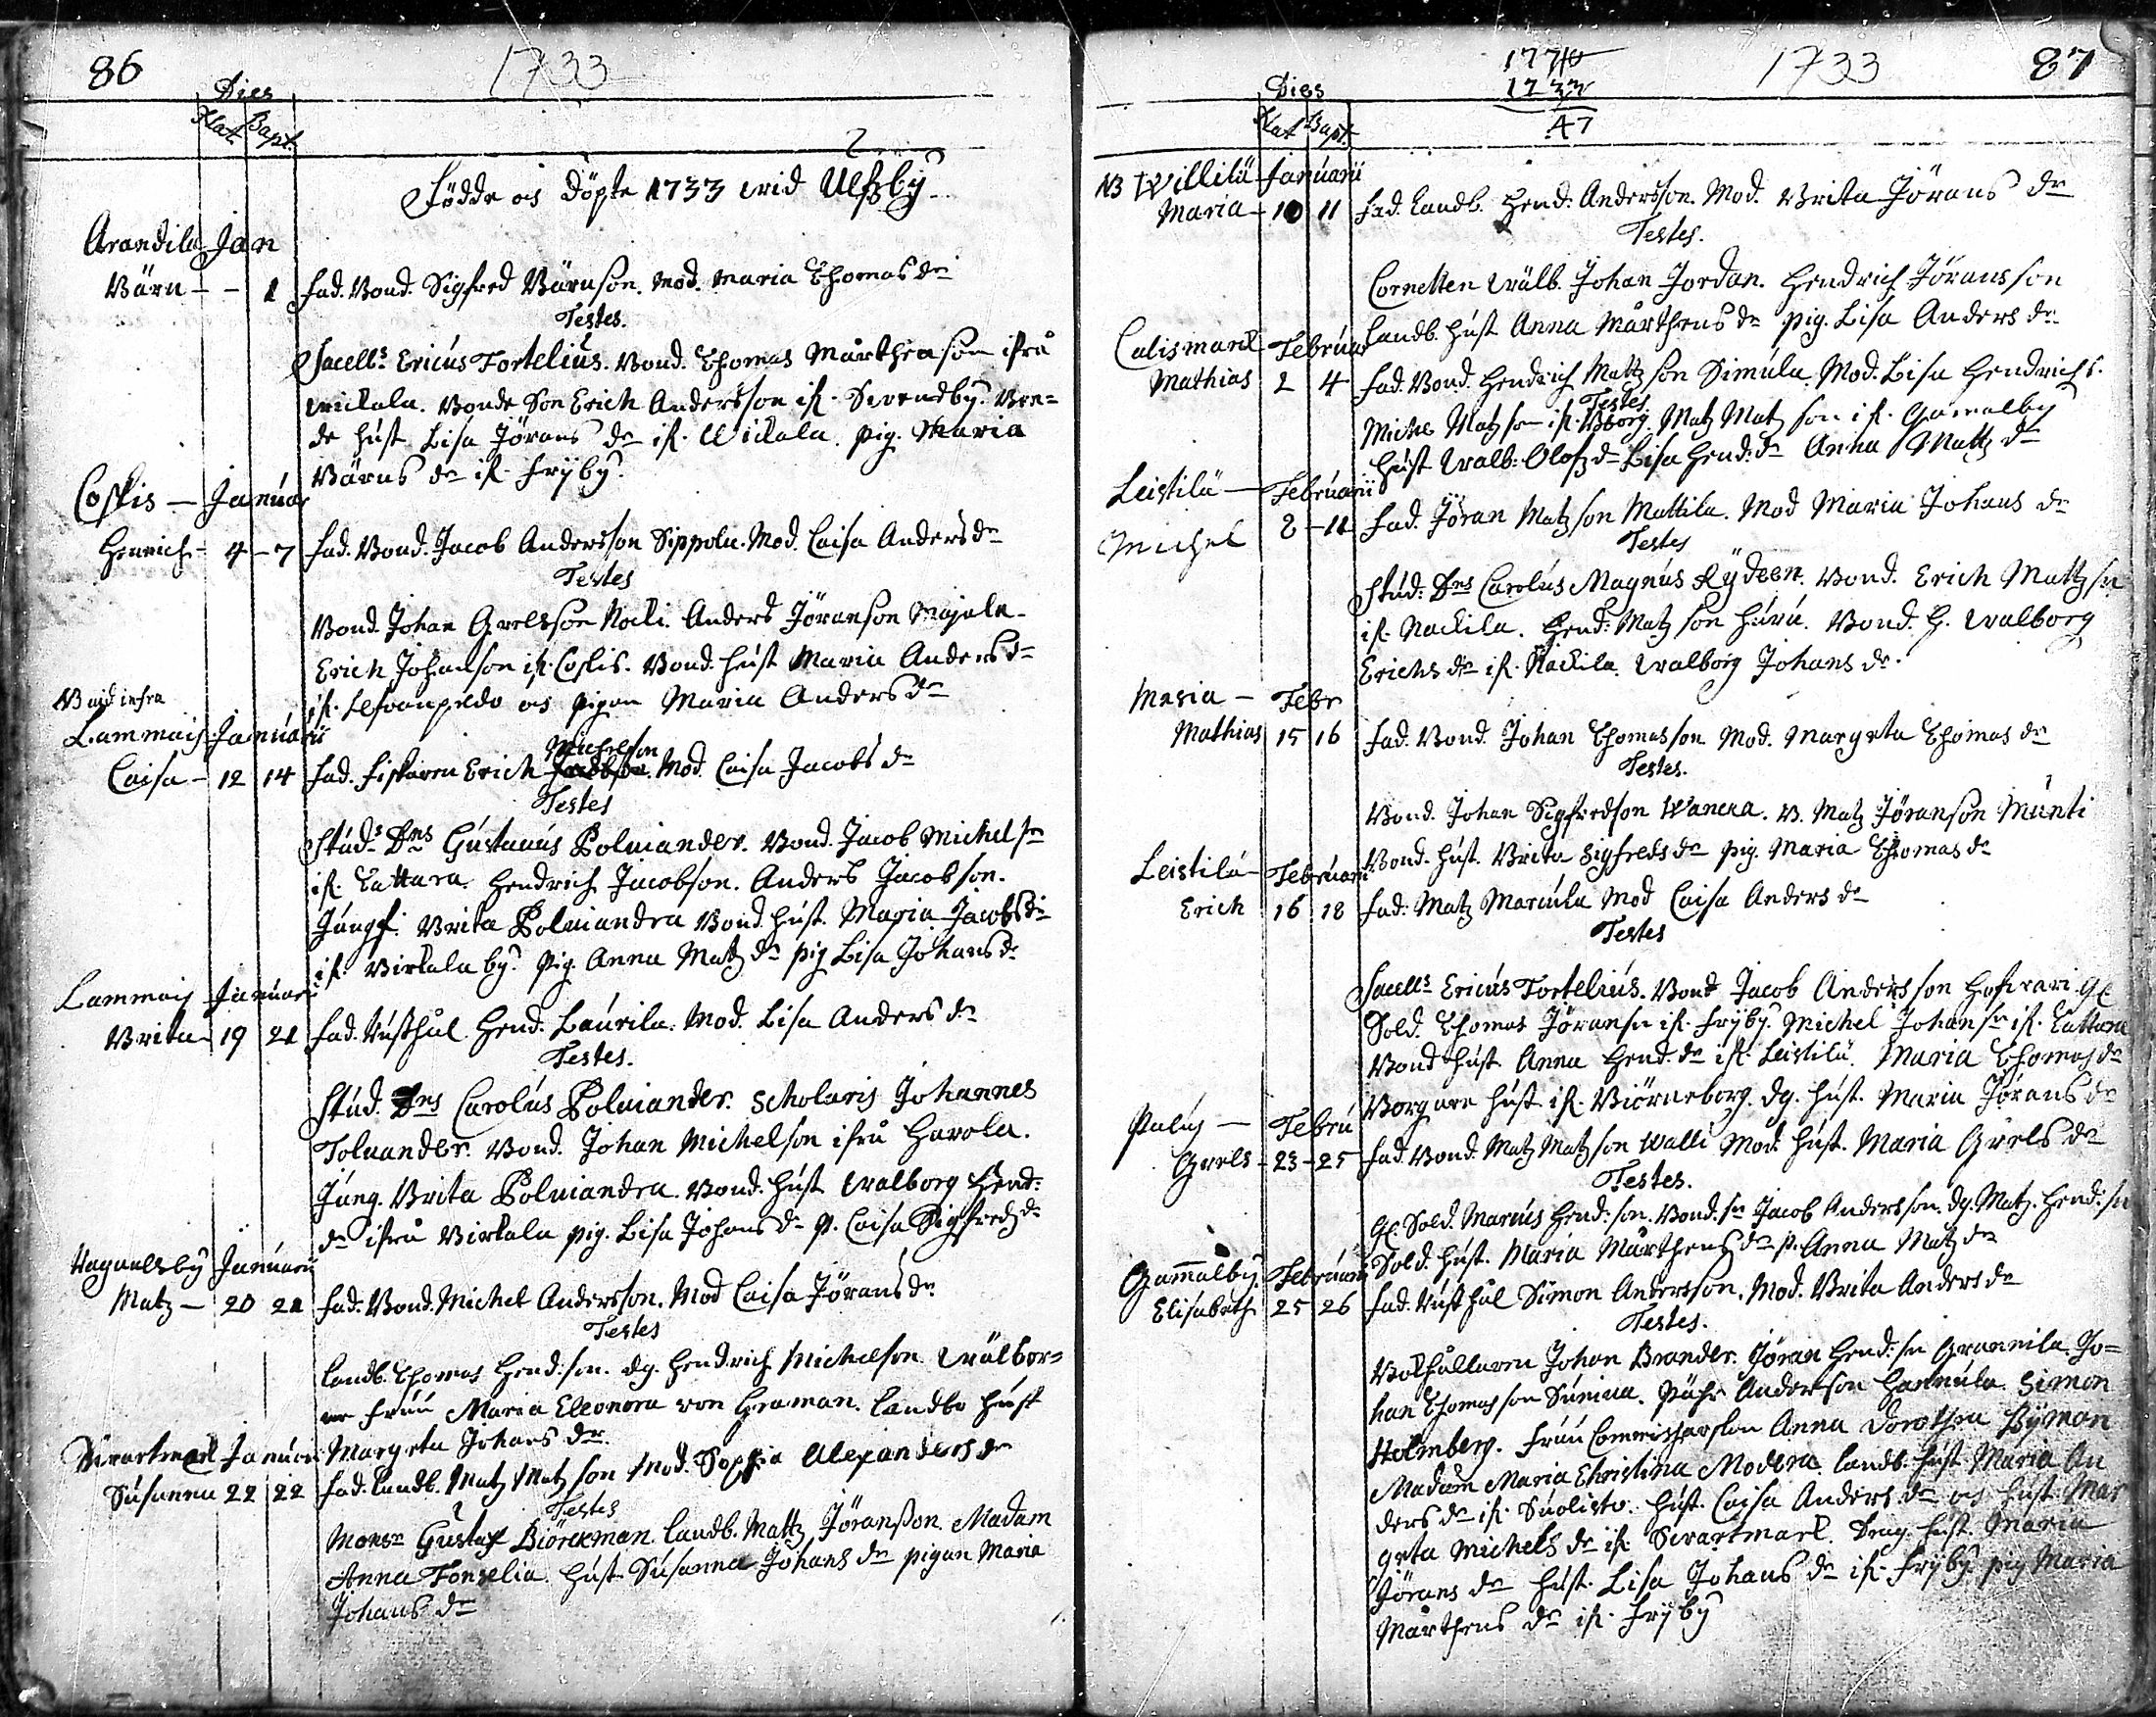 86
1733
Dies
Nat. Bapt.
Födde os Döpte 1733 wid Ulfsby
Arandila Jan
Bärn - - 1 fad. Bond. Sigfred Bärnson. Mod. Maria Thomas dr
Testes.
Sacell:s Ericus Fortelius. Bond. Thomas Mårthenson ifrå
Wickala. Bonde Son Erich Andersson if. Swendby. Bon=
de hust. Lisa Jörans dr if. Wickala. pig. Maria
Bärns dr if. Fryby.
Coskis — Januar
Henrich - 4 - 7 fad. Bond. Jacob Andersson Sippola. Mod. Caisa Anders dr
Testes
Bond. Johan Grelsson Anders Jöranson Majala
Erich Johanson if. Coskis. Bond. hust Maria Anders dr
if. os pigan Maria Anders dr
NB vid infra
Lammais Januarii
Michelson
Caisa - 12 14 fad. fiskaren Erich Jacobson. Mod. Caisa Jacobs dr
Testes
Stud:s Dns Gustavus Polviander. Bond. Jacob Michelsn
if. Lattara. Hendrich Jacobson. Anders Jacobson.
Jungf. Brita Polviandra Bond. hust. Maria Jacobs dr
if. Wirkala by. pig. Anna Matz dr pig Lisa Johans dr
Lammais Januari
Brita 19 21 fad. Rusthål. Hend. Laurila. Mod. Lisa Anders dr
Testes.
Stud. Dns Carolus Polviander. Scholaris Johannes
Tolvander. Bond. Johan Michelson ifrå Harola.
Jung. Brita Polviandra. Bond. hust Walborg Hend:
dr ifrå Wirkala pig. Lisa Johans dr p. Caisa Sigfredz dr
Ragnelsby Januarii
Matz — 20 21 fad. Bond. Michel Andersson. Mod Caisa Jörans dr
Testes
Landb. Thomas Hend:son. dg. Hendrich Michelson Wälbor=
ne fruu Maria Eleonora von Graman. Landbo hust
Margeta Johans dr.
Swartmark Januar
Susanna 22 22 fad. Landb. Matz Matzson Mod. Sophia Alexanders dr
Testes
Monsr Gustaf Biörckman. Landb. Mattz Jöransson. Madam
Anna Fonselia. hust Susanna Johans dr pigan Maria
Johans dr
1770
1733
47
1733
87
Dies
Nat Bapt.
NB Willilä Januarii
Maria - 10 11 fad. Landb. Hend: Andersson. Mod. Brita Jörans dr
Testes.
Cornetten Wälb. Johan Jordan. Hendrich Jöransson
Landb. hust Anna Mårthens dr pig. Lisa Anders dr
Calismark Februar
Mathias 2 4 fad. Bond. Hendrich Mattzson Simula. Mod. Lisa Hendrichs.
Testes
Michel Matzson if. Matz Matzson if. Gamalby
hust Walb: Olofz dr Lisa Hend: dr Anna Mattz dr
Leistilä — Februarii
Michel 8 - 11 fad. Jöran Matzson Mattila. Mod Maria Johans dr
Testes
Stud: Dns Carolus Magnus Rydeen. Bond. Erich Mattzsn
if. Nackila. Hend: Matzson huru. Bond. H. Walborg
Erichs dr if. Nackila. Walborg Johans dr.
Masia — Febr
Mathias 15 16 fad. Bond. Johan Thomasson Mod. Margeta Thomas dr
Testes.
Bond. Johan Sigfredson Wanera. B. Matz Jöranson Munti
Bond. hust. Brita Sigfreds dr pig. Maria Thomas dr
Leistilä - Februari
Erich 16 18 fad: Matz Marcula Mod Caisa Anders dr
Testes
Sacell:s Ericus Fortelius. Bond Jacob Andersson
Sold. Thomas Jöransn if. Fryby. Michel Johansn if. Lattara
Bond hust Anna Hend: dr if. Leistilä. Maria Thomas dr
Borgare hust if. Biörneborg. dg. hust. Maria Jörans dr
Palus — Febru
Grels - 23 - 25 fad. Bond. Matz Matzson Walli Mod. hust. Maria Grels dr
Testes.
Gl. Sold. Marcus Hend:son. Bond.sn Jacob Andersson. dg. Matz. Hend:sn
Sold. hust. Maria Mårthens dr p. Anna Matz dr
Gammalby. Februarii
Elisabeth 25 26 fad. Rusthål Simon Andersson. Mod. Brita Anders dr
Testes.
Bokhållaren Johan Brander. Jöran Hend:sn Grannila. Jo=
han Thomasson Sunina. Påhr Anderson Hannula. Simon
Holmberg. Fruu Anna Dorothea Byman
Madam Maria Christina Modera. Landb. hust Maria An
ders dr if. Suolisto. hust. Caisa Anders dr os hust Mar
geta Michels dr if. Swartmark. Dreng. hust. Maria
Jörans dr hust. Lisa Johans dr if. Fryby. pig Maria
Mårthens dr if. Fryby